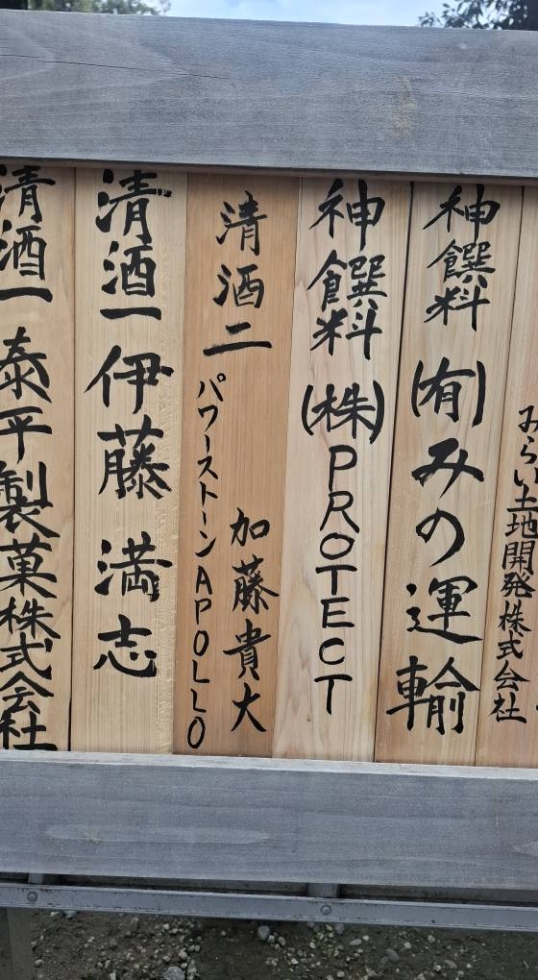 みらい土地開発株式会社
神饌料 (有)みの運輸
神饌料 (株)PROTECT
清酒二
加藤貴大
パワーストーンAPOLLO
清酒一 伊藤 満志
清酒一 泰平製菓株式会社